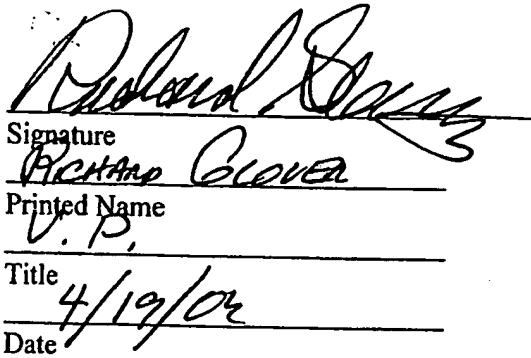 Richard Glover
Signature
RICHARD GLOVER
Printed Name
V. P.
Title
4/19/02
Date